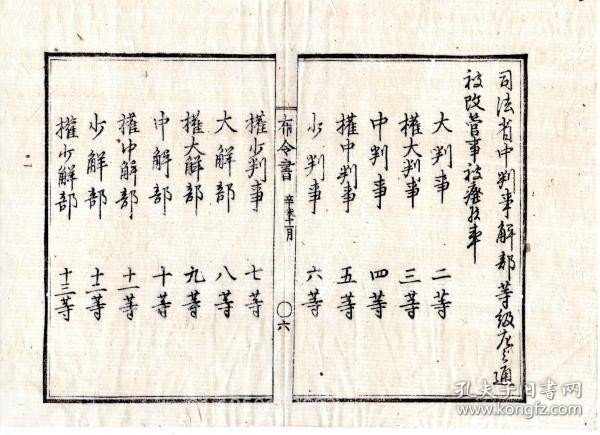 司法省中判事解部等級左之通
被改菅事被廃候事
大判事 二等
権大判事 三等
中判事 四等
権中判事 五等
少判事 六等
布令書 辛未十一月 〇六
権少判事 七等
大解部 八等
権大解部 九等
中解部 十等
権中解部 十一等
少解部 十二等
権少解部 十三等
孔夫子旧书网
www.kongfz.com